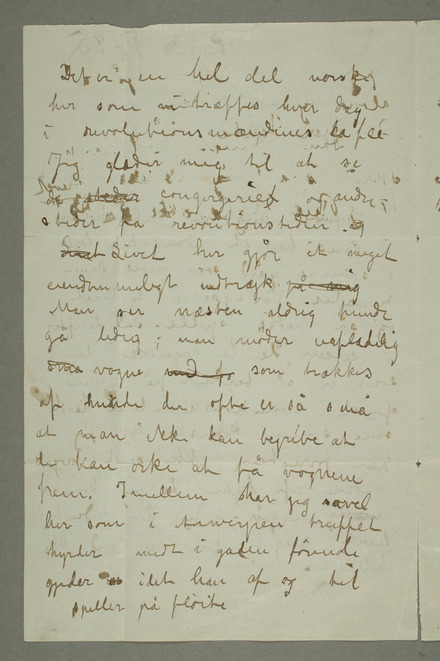 Det er en hel del norske
her som vi træffes hver dag
i revolutionsmændenes café
Jeg glæder mig til at se
steder conciergeriet og andre
steder fra revolutionstiden og
Livet Livet her gjør et meget
eiendommeligt indtryk på mig
Man ser næsten aldrig hunde
gå ledig; man møder uafladelig
små vogne med fo som trækkes
af hunde der ofte er så små
at man ikke kan begribe at
de kan orke at få vognene
frem. Imellem har jeg såvel
her som i Antwerpen truffet
hyrder midt i gaden førende
gjeder idet han af og til
spiller på fløite